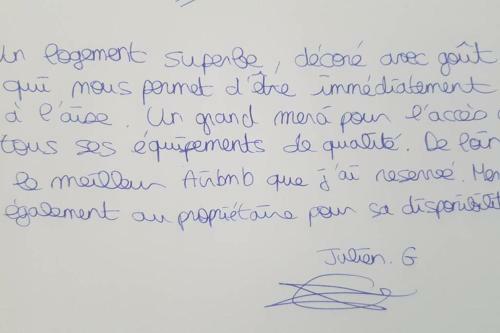 un logement superbe, décoré avec goût
qui nous permet d'être immédiatement
à l'aise. Un grand merci pour l'accès
tous ses équipements de qualité. De loin
le meilleur Airbnb que j'ai reservé. Mer
également au propriétaire pour sa disponibilit
Julien. G